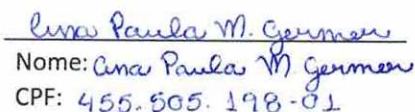 Ana Paula M. Germer
Nome: Ana Paula M Germer
CPF: 455.505.198-01